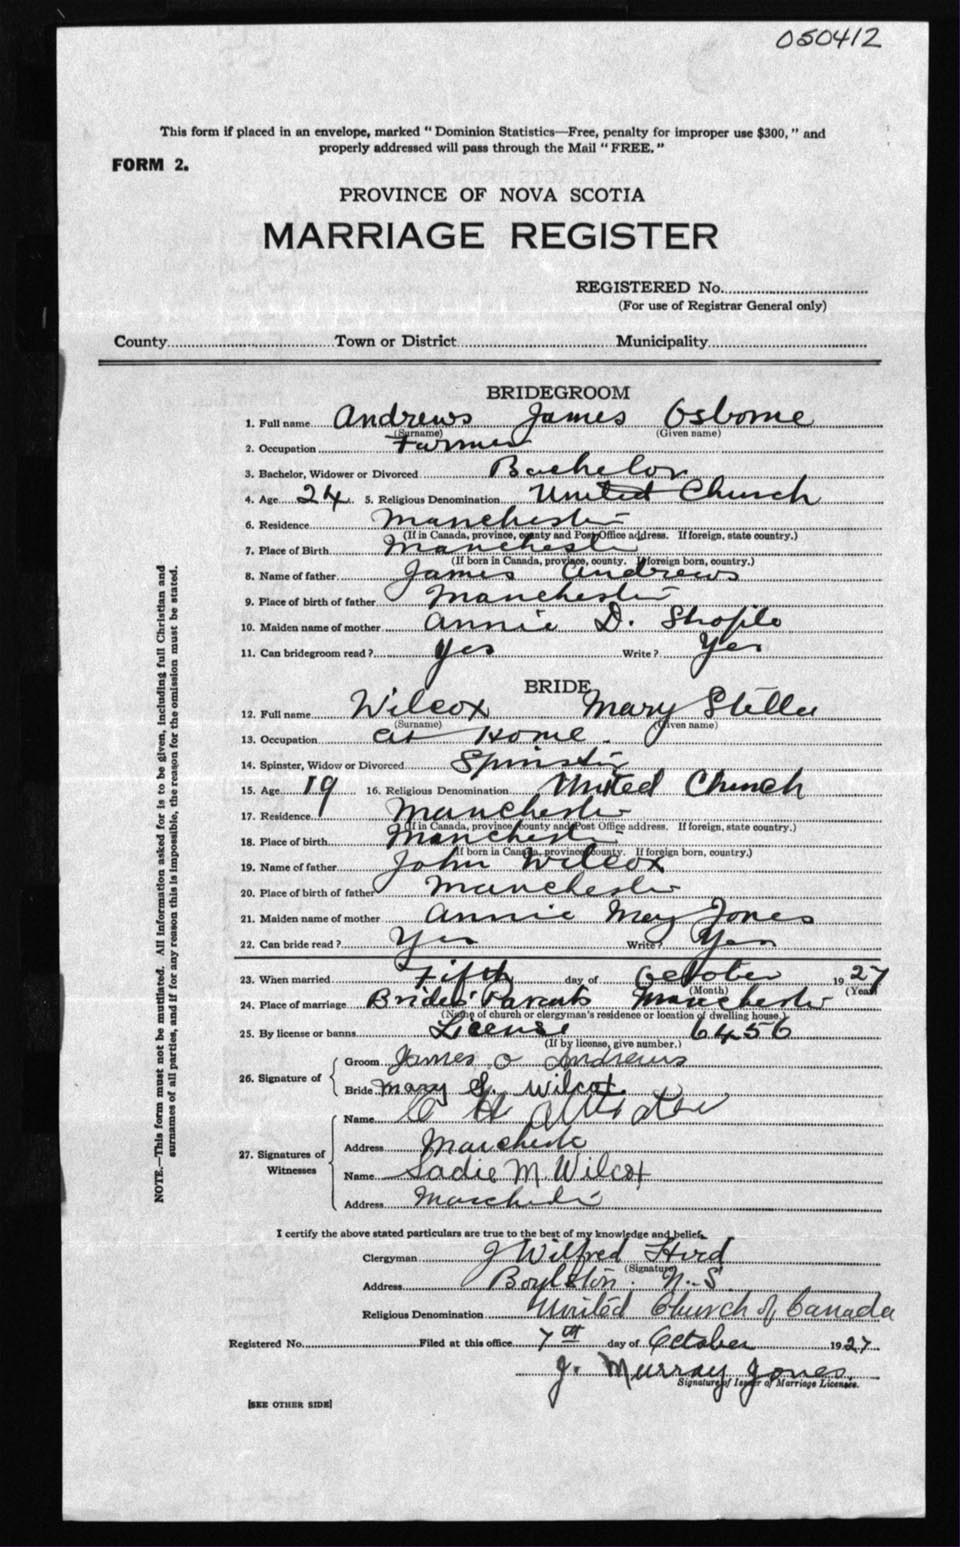 050412
This form if placed in an envelope, marked "Dominion Statistics—Free, penalty for improper use $300," and
properly addressed will pass through the Mail "FREE."
FORM 2.
PROVINCE OF NOVA SCOTIA
MARRIAGE REGISTER
REGISTERED No.
(For use of Registrar General only)
County Town or District Municipality
BRIDEGROOM
1. Full name Andrews James Osborne
(Surname) (Given name)
2. Occupation Farmer
3. Bachelor, Widower or Divorced Bachelor
4. Age 24 5. Religious Denomination United Church
6. Residence Manchester
(If in Canada, province, county and Post Office address. If foreign, state country.)
7. Place of Birth Manchester
(If born in Canada, province, county. If foreign born, country.)
8. Name of father James Andrews
9. Place of birth of father Manchester
10. Maiden name of mother Annie D.
11. Can bridegroom read? Yes Write? Yes
BRIDE
12. Full name Wilcox Mary Stella
(Surname) (Given name)
13. Occupation at Home
14. Spinster, Widow or Divorced Spinster
15. Age 19 16. Religious Denomination United Church
17. Residence Manchester
(If in Canada, province county and Post Office address. If foreign, state country.)
18. Place of birth Manchester
(If born in Canada, province county. If foreign born, country.)
19. Name of father John Wilcox
20. Place of birth of father Manchester
21. Maiden name of mother Annie May Jones
22. Can bride read? Yes Write? Yes
23. When married Fifth day of October 1927
(Month) (Year)
24. Place of marriage Brides' Parents Manchester
(Name of church or clergyman's residence or location of dwelling house)
25. By license or banns License 6456
(If by license, give number.)
26. Signature of
Groom James O Andrews
Bride Mary S. Wilcox
27. Signatures of Witnesses
Name C H
Address Manchester
Name Sadie M. Wilcox
Address Manchester
I certify the above stated particulars are true to the best of my knowledge and belief.
Clergyman J Wilfred Hird
(Signature)
Address Boylston N.S.
Religious Denomination United Church of Canada
Registered No. Filed at this office 7th day of October 1927
J. Murray Jones
Signature of Issuer of Marriage Licenses.
[SEE OTHER SIDE]
NOTE.—This form must not be mutilated. All information asked for is to be given, including full Christian and
surnames of all parties, and if for any reason this is impossible, the reason for the omission must be stated.